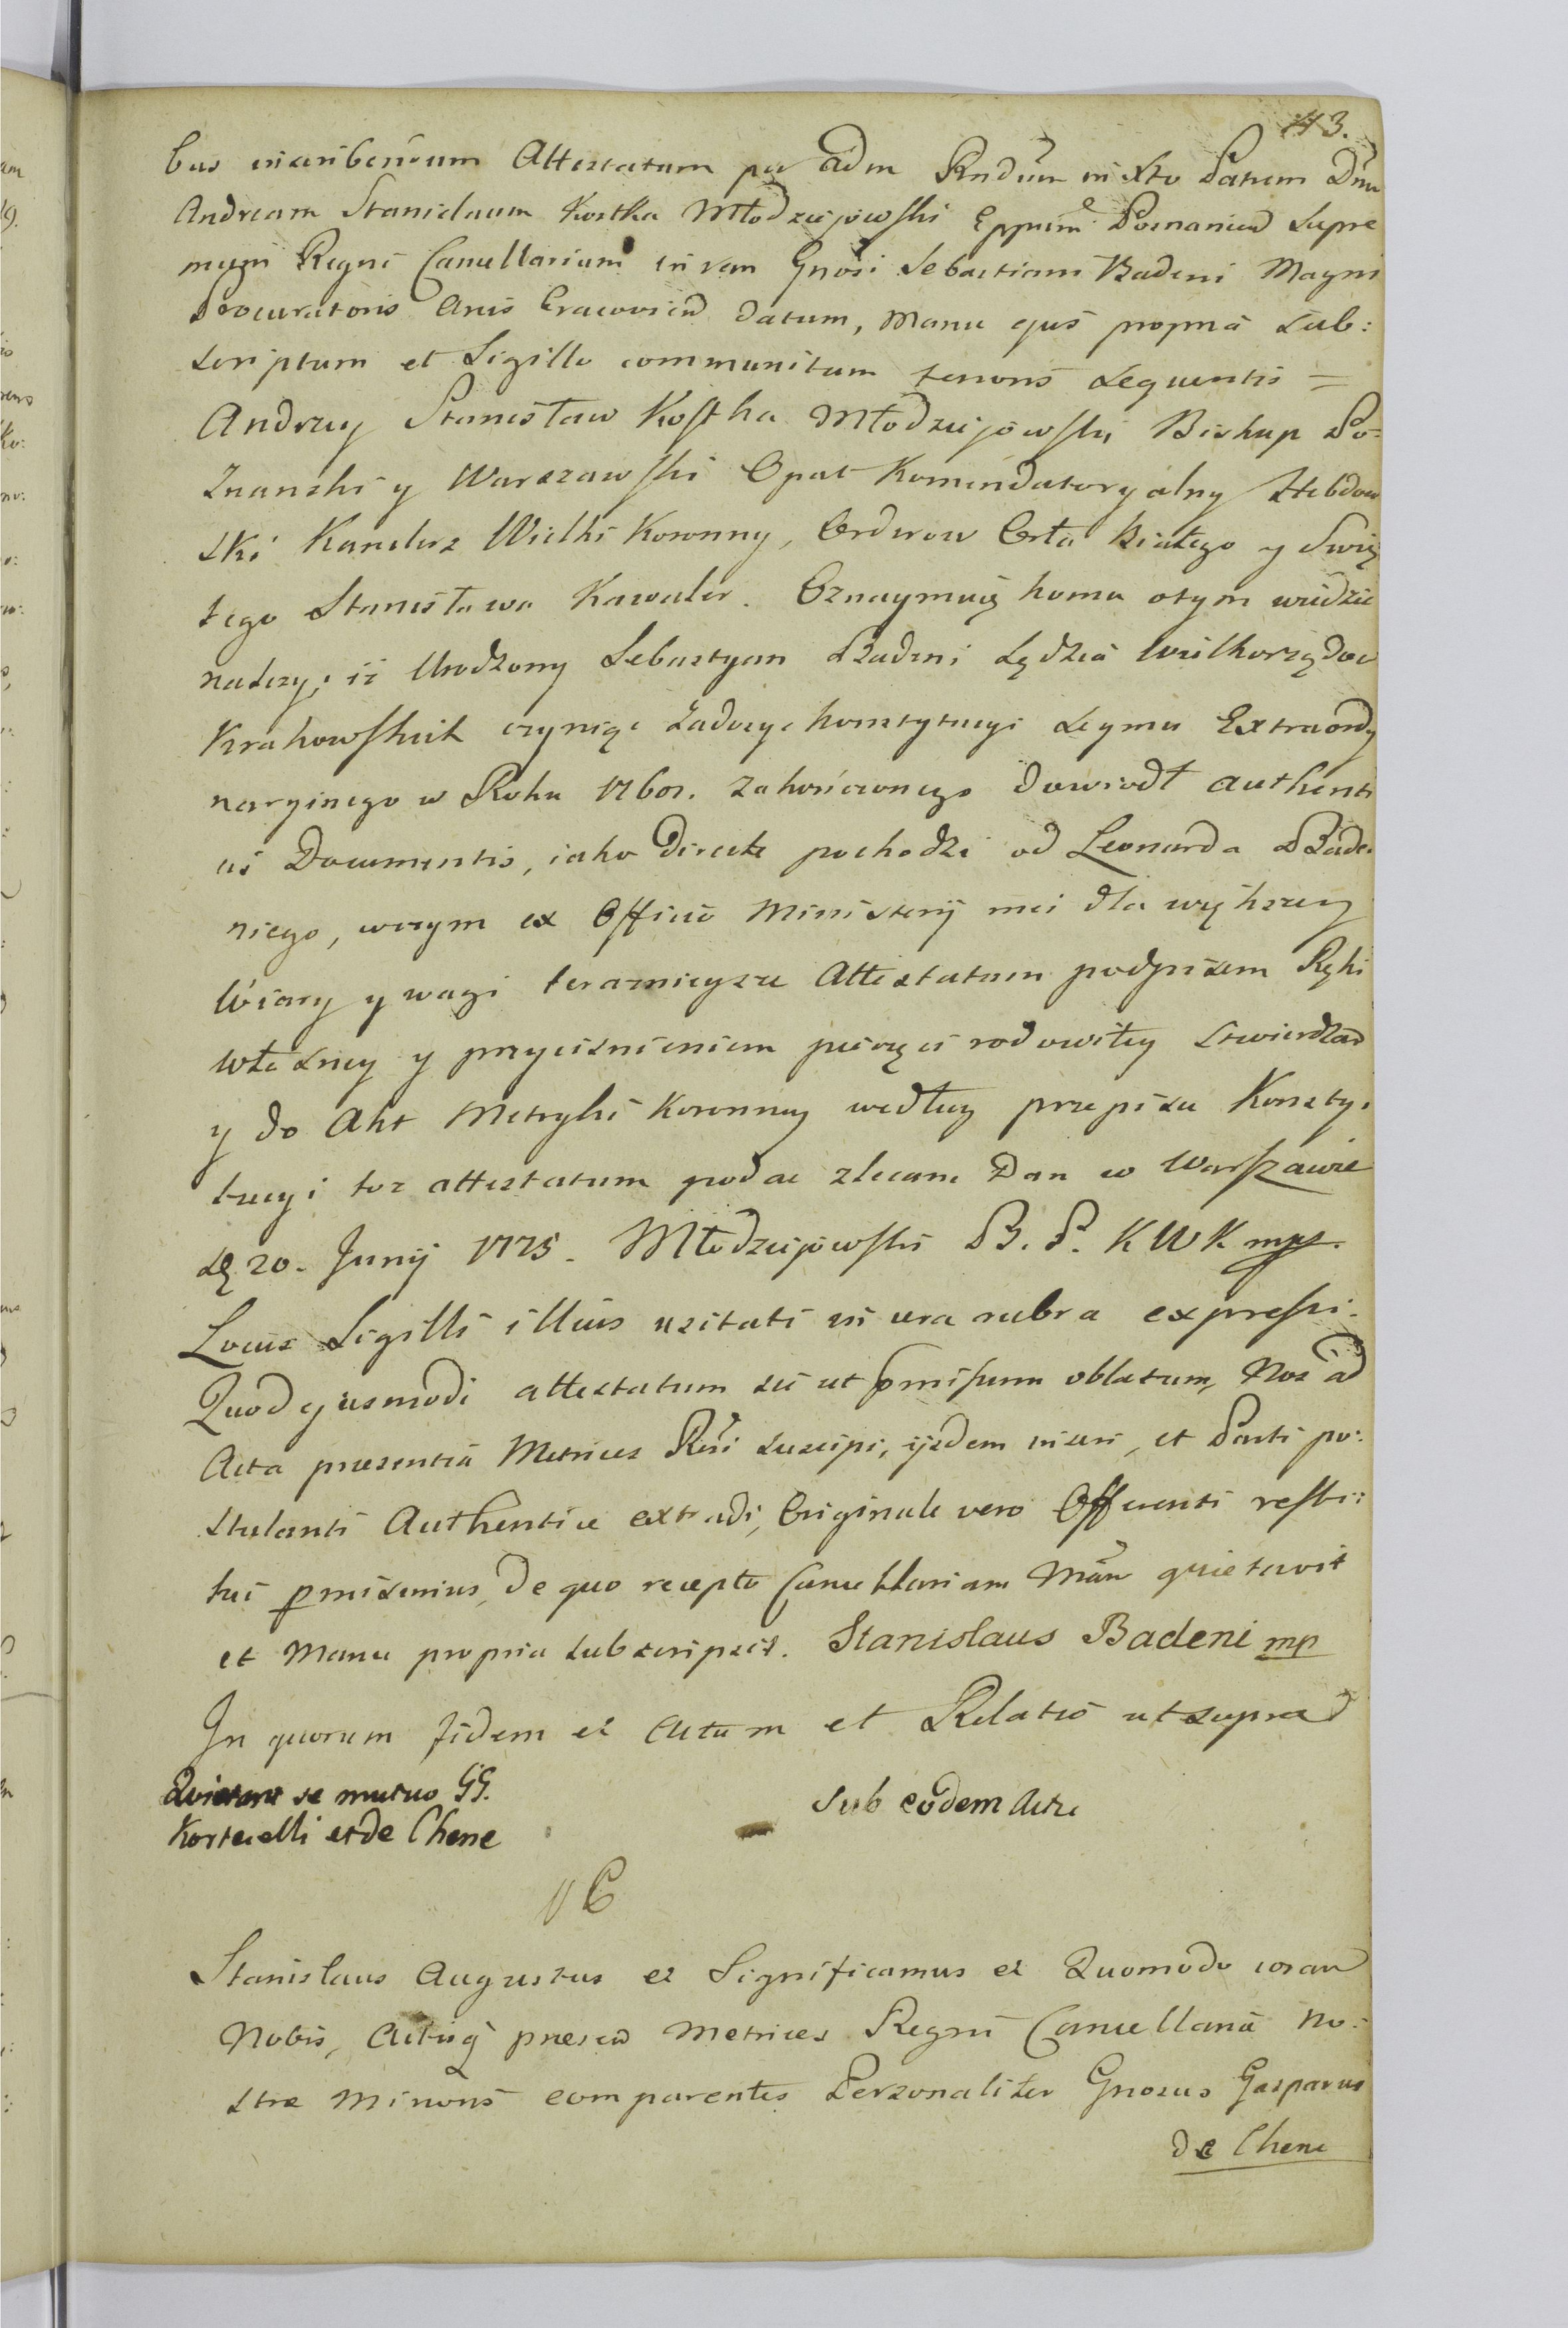 43.
bus inscribendum Attestatum per adm Rndum in Xto Patrem Dnum
Andream Stanislaum Kostka Młodziejowski Eppum Posnanien Supre
mum Regni Cancellarium in rem Gnosi Sebastiani Badeni Magni
Procuratoris Arcis Cracovien datum, Manu ejus propria sub:
scriptum et Sigillo communitum tenoris sequentis =
Andrzey Stanisław Kostka Młodziejowski Biskup Po=
znanski y Warszawski Opat Komendatoryalny Hebdow
ski Kanclerz Wielki Koronny, Orderow Orła Białego y Swię
tego Stanisława Kawaler. Oznaymuię komu otym wiedzie
nalezy, iż Urodzony Sebastyan Badeni Sędzia Wielkorządow
Krakowskich czyniąc zadosyc konstytucyi Seymu Extraordy
naryinego w Roku 1768. zakończonego dowiodł authenti
cis Documentis, iako directe pochodzi od Leonarda Bade
niego, wczym ex Officio Ministerij mei dla większey
Wiary y wagi teraznieysze Attestatum podpisem Ręki
własney y przycisnieniem pieczęci rodowitey stwierdzam
y do Akt Metryki Koronney według przepisu Konsty:
tucyi toz attestatum podac zlecam Dan w Warszawie
d 20. Junij 1775. Młodziejowski B. P. K W K mpp.
Locus Sigilli illius usitati in cera rubra expressi.
Quod ejusmodi attestatum sic ut pmissum oblatum, Nos ad
Acta præsentia Metrices Rni suscipi, ijsdem inseri, et Parti po:
stulanti Authentice extradi, Originale vero Offerenti resti:
tui pmisimus, de quo recepto Cancellariam Mem quietavit
et Manu propria subscripsit. Stanislaus Badeni mp
In quorum fidem et Actum et Relatio ut supra
Quietant se mutuo GG.
Korticelli et de Chene
Sub eodem Actu
Stanislaus Augustus et Significamus et Quomodo coram
Nobis, Actisq præsen Metrices Regni Cancellariæ No:
stræ Minoris comparentes Personaliter Gnosus Gasparus
de Chene